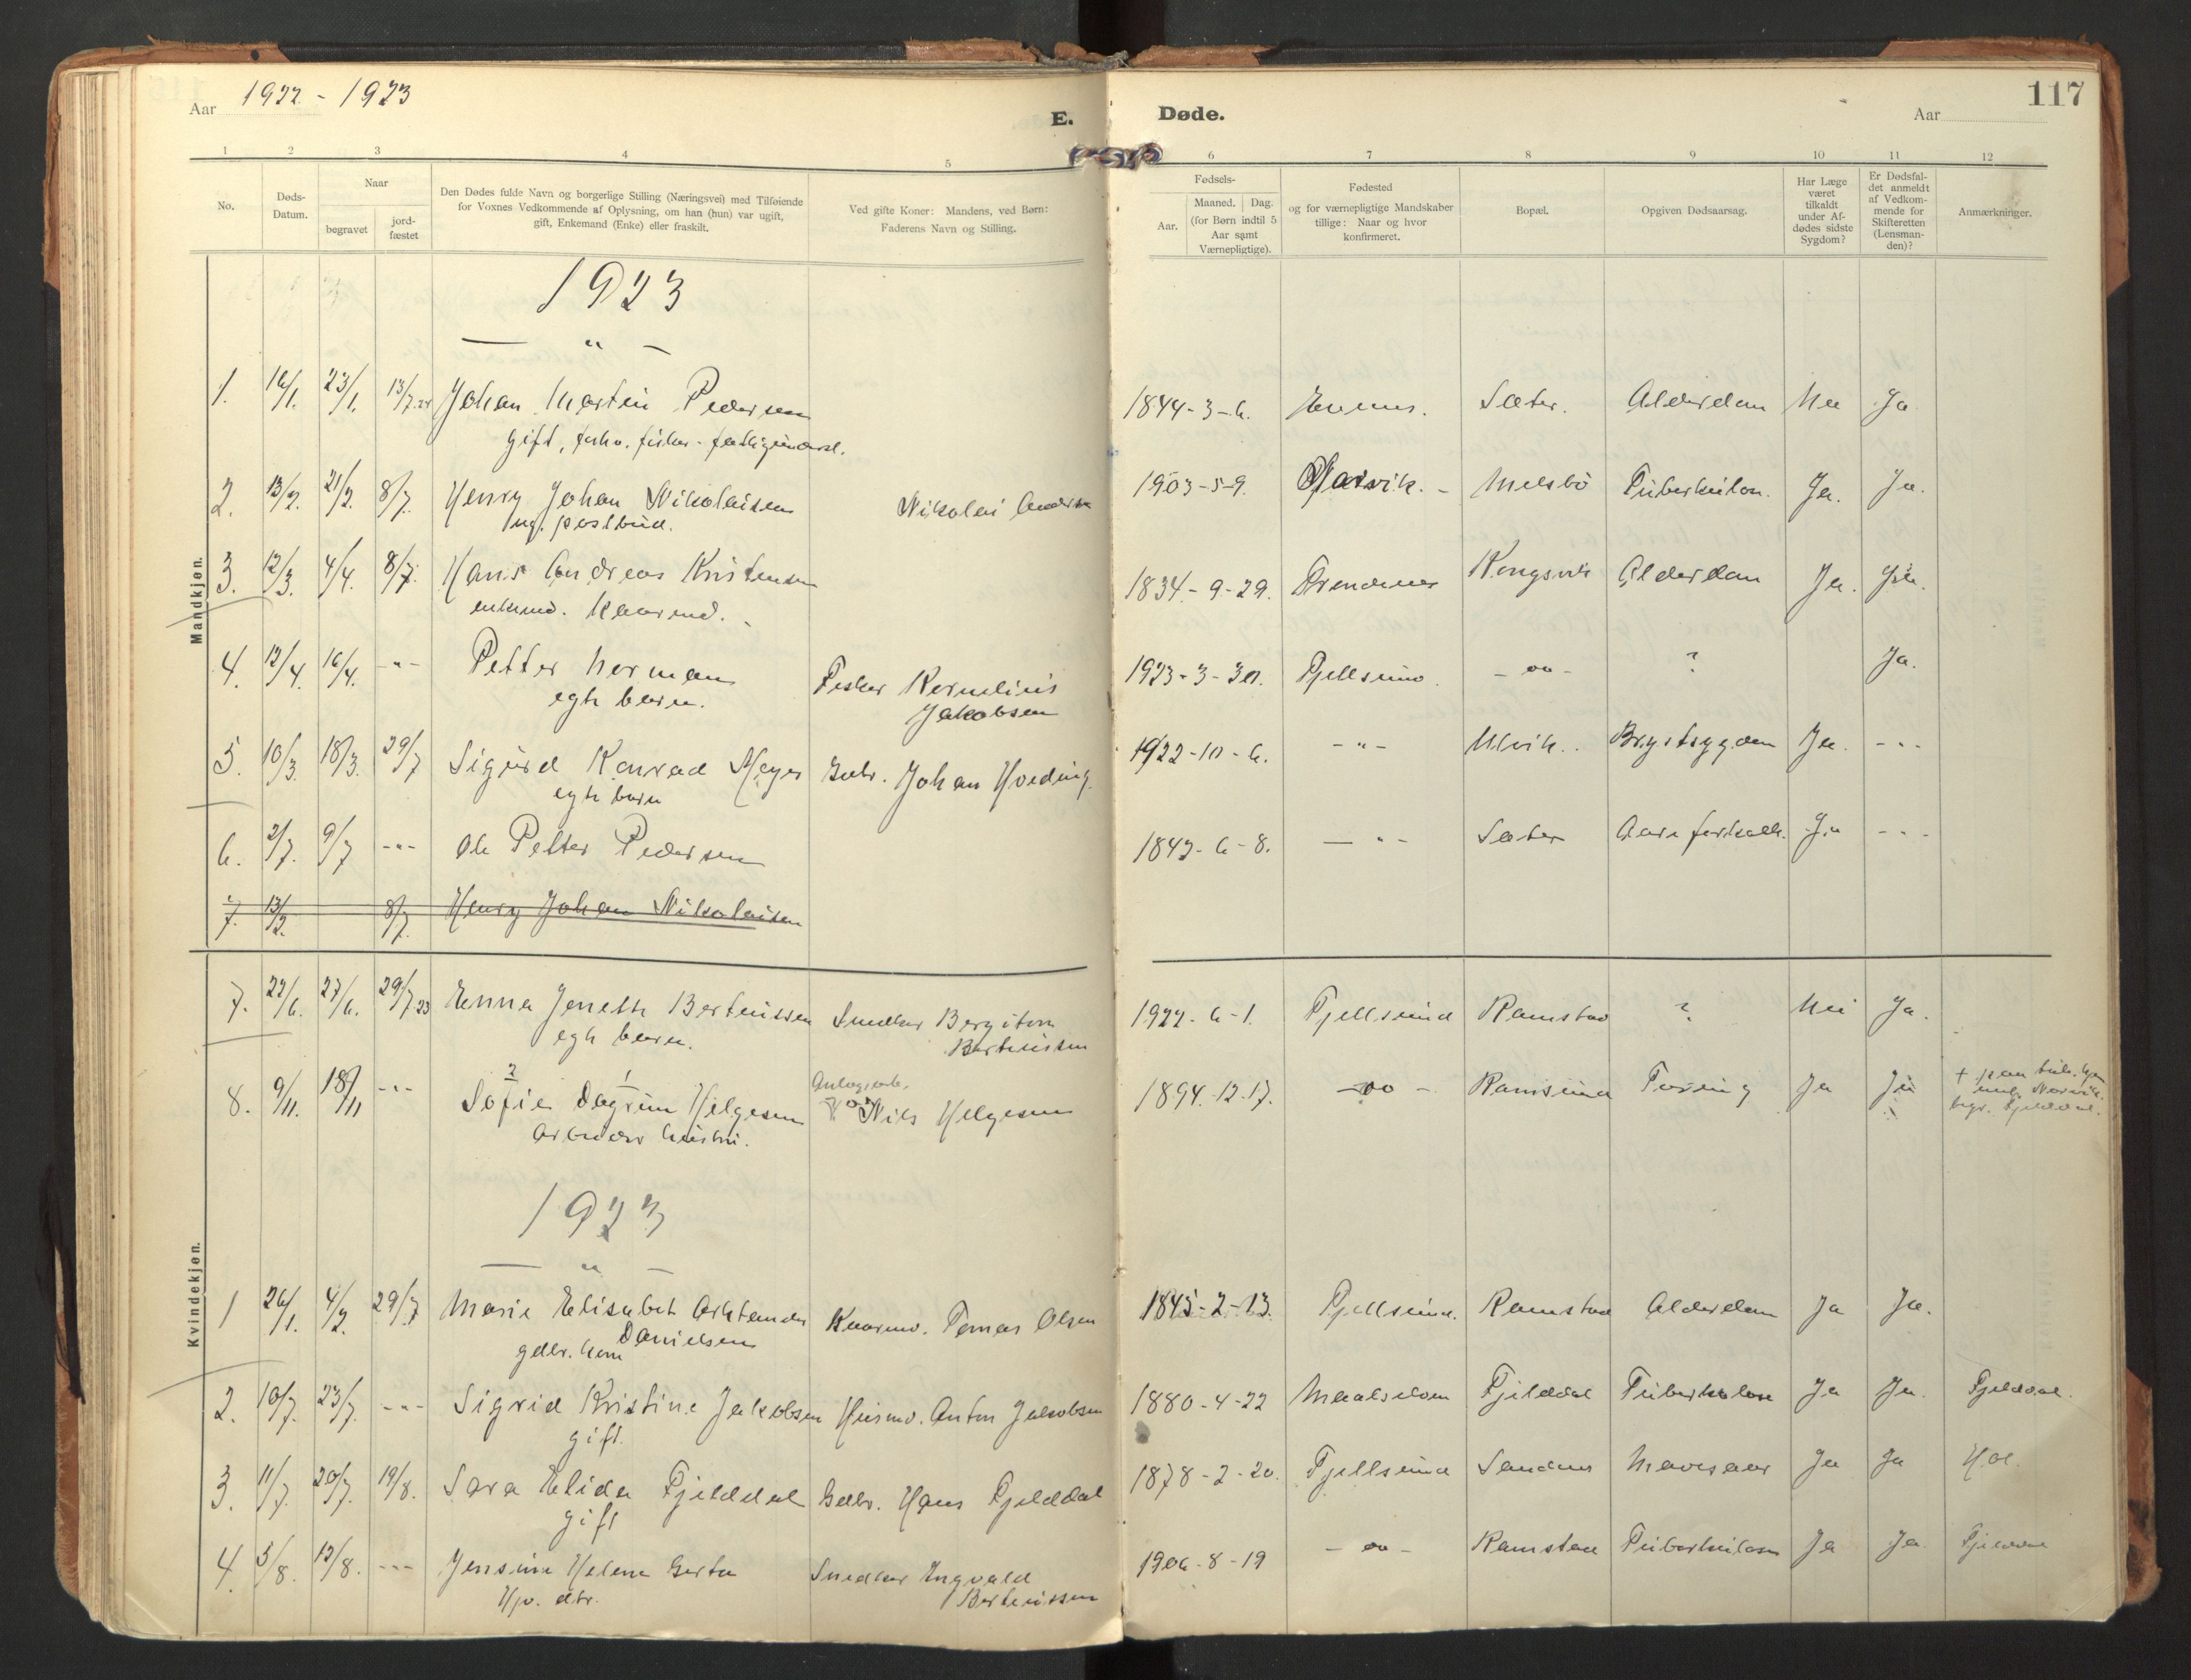 Aar 1922 - 1923
E.
Døde.
Aar
117
1 2 3 4 5 6 7 8 9 10 11 12
No.
Døds-
Datum.
Naar
begravet
jord-
fæstet
Den Dødes fulde Navn og borgerlige Stilling (Næringsvei) med Tilføiende
for Voxnes Vedkommende af Oplysning, om han (hun) var ugift,
gift, Enkemand (Enke) eller fraskilt.
Ved gifte Koner: Mandens, ved Børn:
Faderens Navn og Stilling.
Fødsels-
Aar.
Maaned. Dag.
(for Børn indtil 5
Aar samt
Værnepligtige).
Fødested
og for værnepligtige Mandskaber
tillige: Naar og hvor
konfirmeret.
Bopæl.
Opgiven Dødsaarsag.
Har Læge
været
tilkaldt
under Af-
dødes sidste
Sygdom?
Er Dødsfal-
det anmeldt
af Vedkom-
mende for
Skifteretten
(Lensman-
den)?
Anmærkninger.
Mandkjøn.
1923
— " —
1. 16/1. 23/1. 13/7.24 Johan Martin Pedersen 1844-3-6. Evenes. Sæter. Alderdom Nei Ja
gift, forhv. fisker - fattigunderst.
2. 13/2. 21/2. 8/7. Henry Johan Nikolaisen Nikolai 1903-5-9. Narvik. - Melsbö Tuberkulon. Ja. Ja.
ug. postbud.
3. 12/3. 4/4. 8/7. Hans Andreas Kristensen 1834-9-29. Trondenes Kongsvik Alderdom Ja. Ja.
enkemd. Kaarmd.
4. 12/4. 16/4. -"- Petter Herman Fisker Kornelius 1923-3-30. Fjellsund. - oo - ? Ja.
egte barn. Jakobsen
5. 10/3. 18/3. 29/7 Sigurd Konrad Meyer Gbr. Johan Hveding. 1922-10-6. -"- Ulvik. Brystsygdom Ja. -"-
egte barn
6. 2/7. 9/7 -"- Ole Petter Pedersen 1842-6-8. -"- Sæter Aareforkalk. Ja -"-
7. 13/2. 8/7. Henry Johan Nikolaisen
Kvindekjøn.
7. 22/6. 27/6. 29/7 23 Enna Jenette Berteussen Snedker Bergiton 1922-6-1. Fjellsund Ramstad ? Nei Ja.
egte barn. Berteussen
8. 9/11. 18/11 -"- Sofie Dagrun Helgesen Nils Helgesen 1894.12-17. - oo - Ramsund Tæring Ja Ja
2 1
Arbeider hustru. begr. Fjelddal.
1923
— " —
1 26/1. 4/2. 29/7 Marie Elisabet Arktander Kaarmd. Tomas Olsen 1845-2-13. Fjellsund. Ramstad Alderdom Ja Ja.
gdbr. kone Danielsen
2. 10/7. 23/7. -"- Sigrid Kristine Jakobsen Husmd. Anton Jakobsen 1880-4-22 Maalselven Fjelddal Tuberkulose Ja Ja. Fjelddal.
gift.
3. 11/7. 20/7. 19/8. Sara Elida Fjelddal Gdbr. Hans Fjelddal 1878-2-20. Fjellsund Sandnes Mavesaar Ja Ja Hol.
gift
4. 5/8. 12/8. -"- Jensine Helene Berta Snedker Ingvald 1906-8-19 - oo - Ramstad Tuberkulose Ja Ja. Fjelddal
Hjv. dtr. Berteussen